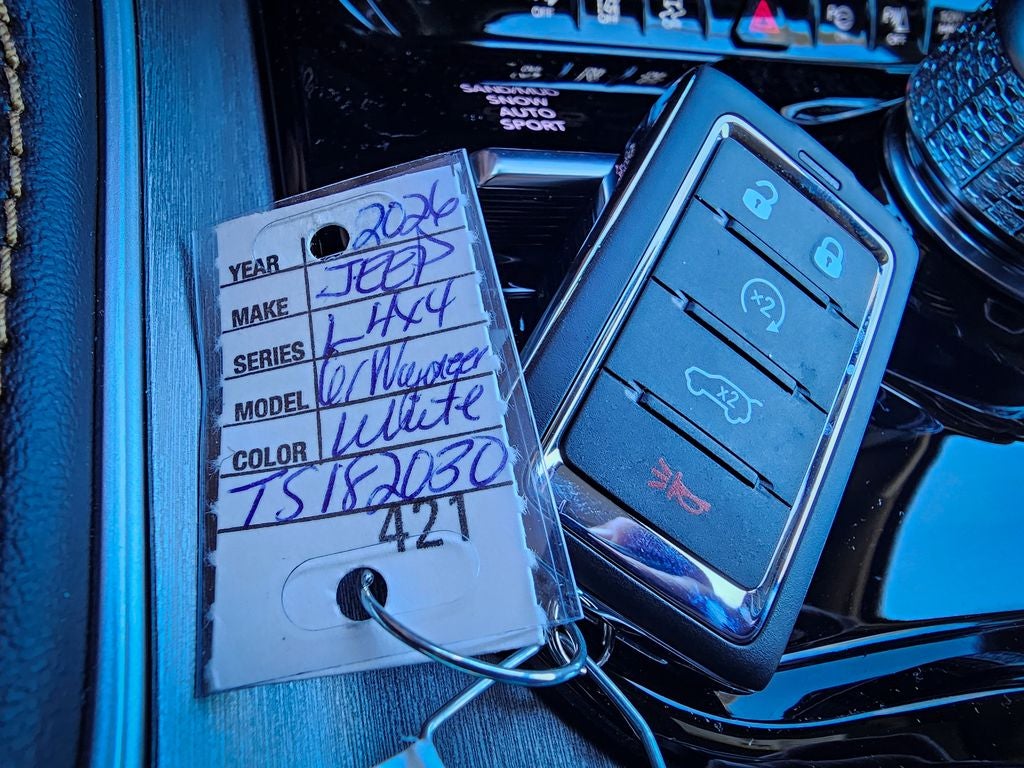 OFF
OFF
SAND/MUD
SNOW
AUTO
SPORT
YEAR 2026
MAKE JEEP
SERIES L 4X4
MODEL G/Wagoneer
COLOR White
TS182030
421
x2
x2